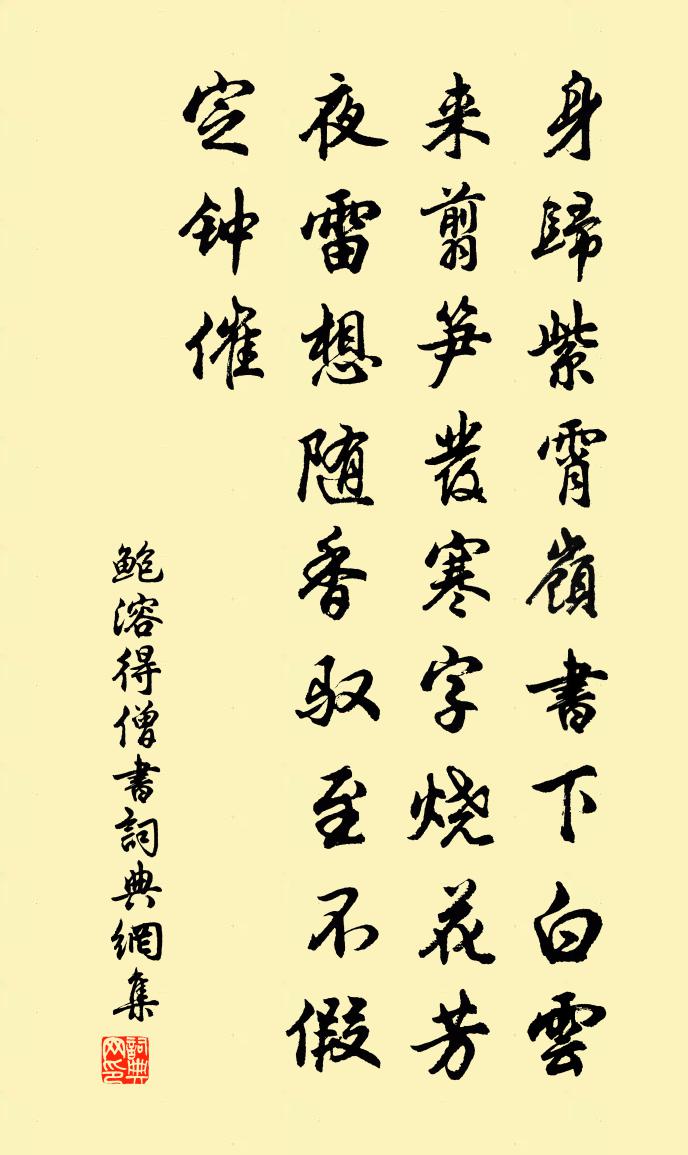 身歸紫霄嶺書下白雲
来翦笋發寒字烧花芳
夜雷想随香驭至不假
定钟催
鲍溶得僧書詞典網集
詞典网印